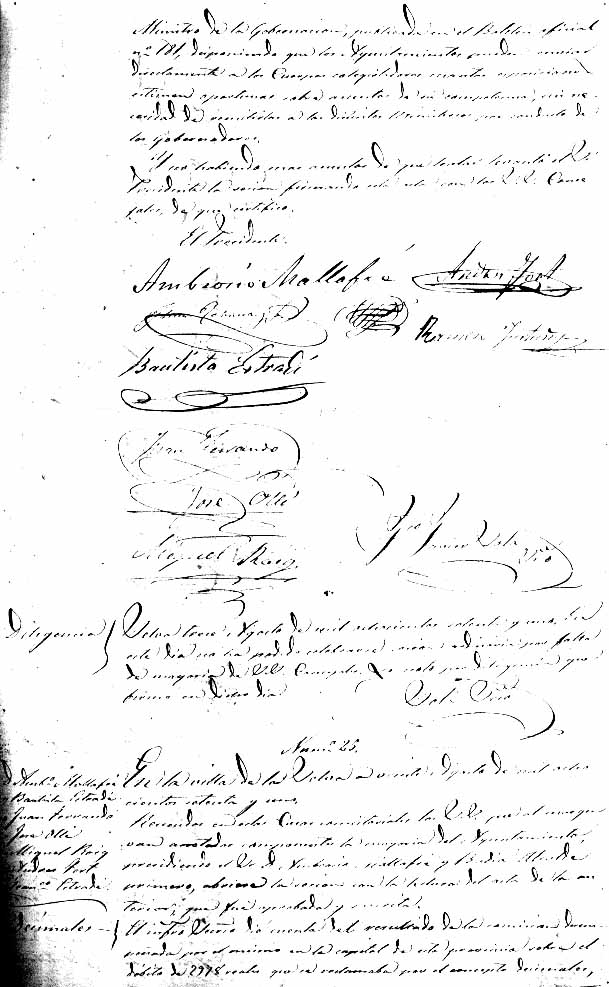 Ministro de la Gobernacion, publicada en el Boletin oficial
nº 181, disponiendo que los Ayuntamientos pueden enviar
directamente a los Cuerpos colegisladores cuantas esposiciones
estimen oportunas sobre asuntos de su competencia, sin ne-
cesidad de remitirlas a los distintos Ministerios por conducto de
los Gobernadores.
Y no habiendo mas asuntos de que tratar levantó el Sr
Presidente la sesion firmando este acta con los S.S. Conce-
jales, de que certifico.
El Presidente.
Ambrosio Mallafré
Andres Fort
Ramon
Bautista Estradé
Juan Ferrando
José Ollé
Miguel Roig
Diligencia
trece Agosto de mil ochocientos setenta y uno. En
este dia no ha podido celebrarse sesion ordinaria por falta
de mayoria de S.S. Concejales. Lo noto por diligencia que
firmo en dicho dia
Num.º 25.
Amb.º Mallafré
Bautista Estradé
Juan Ferrando
José Ollé
Miguel Roig
Andres Fort
Fran.co Estradé
En la villa de la a veinte Agosto de mil ocho
cientos setenta y uno.
Reunidos en estas Casas consistoriales los S.S. que al margen
van anotados componentes la mayoria del Ayuntamiento,
presidiendo el Sr. D. Ambrosio Mallafré y Alcalde
primero, abriose la sesion con la lectura del acta de la an-
terior, que fue aprobada y suscrita.
decimales
El infro Srio dió cuenta del resultado de la comision desem-
peñada por el mismo en la capital de esta provincia sobre el
débito de 2978 reales que se reclamaba por el concepto decimales,